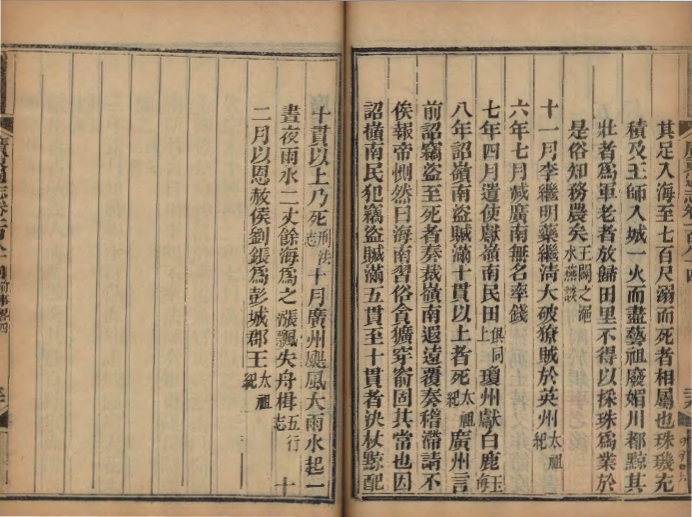 其足入海至七百尺溺而死者相屬也珠璣充
積及王師入城一火而盡藝祖廢媚川都黥其
壯者爲軍老者放歸田里不得以採珠爲業於
是俗知務農矣王闢之澠水燕談
十一月李繼明藥繼清大破獠賊於英州太祖紀
六年七月減廣南無名率錢
七年四月遣使獻嶺南民田俱同上瓊州獻白鹿玉海
八年詔嶺南盜賊滿十貫以上者死太祖紀廣州言
前詔竊盜至死者奏裁嶺南遐遠覆奏稽滯請不
俟報帝惻然曰海南習俗貪獷穿窬固其當也因
詔嶺南民犯竊盜賊滿五貫至十貫者決杖黥配
十貫以上乃死刑法志十月廣州颶風大雨水起一
晝夜雨水二丈餘海爲之漲飄失舟楫五行志十
二月以恩赦侯劉鋹爲彭城郡王太祖紀